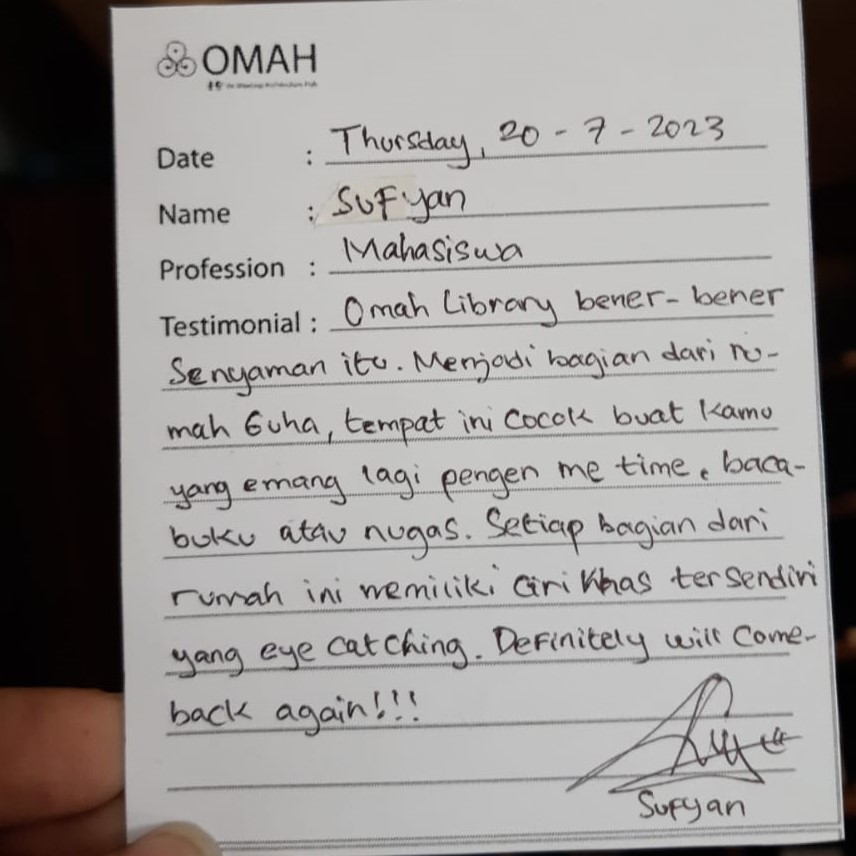 OMAH
Date : Thursday, 20 - 7 - 2023
Name : Sufyan
Profession : Mahasiswa
Testimonial : Omah Library bener-bener
Senyaman itu. Menjadi bagian dari ru-
mah Guha, tempat ini cocok buat kamu
yang emang lagi pengen me time, baca-
buku atau nugas. Setiap bagian dari
rumah ini memiliki Ciri khas tersendiri
yang eye catching. Definitely will come-
back again!!!
Sufyan